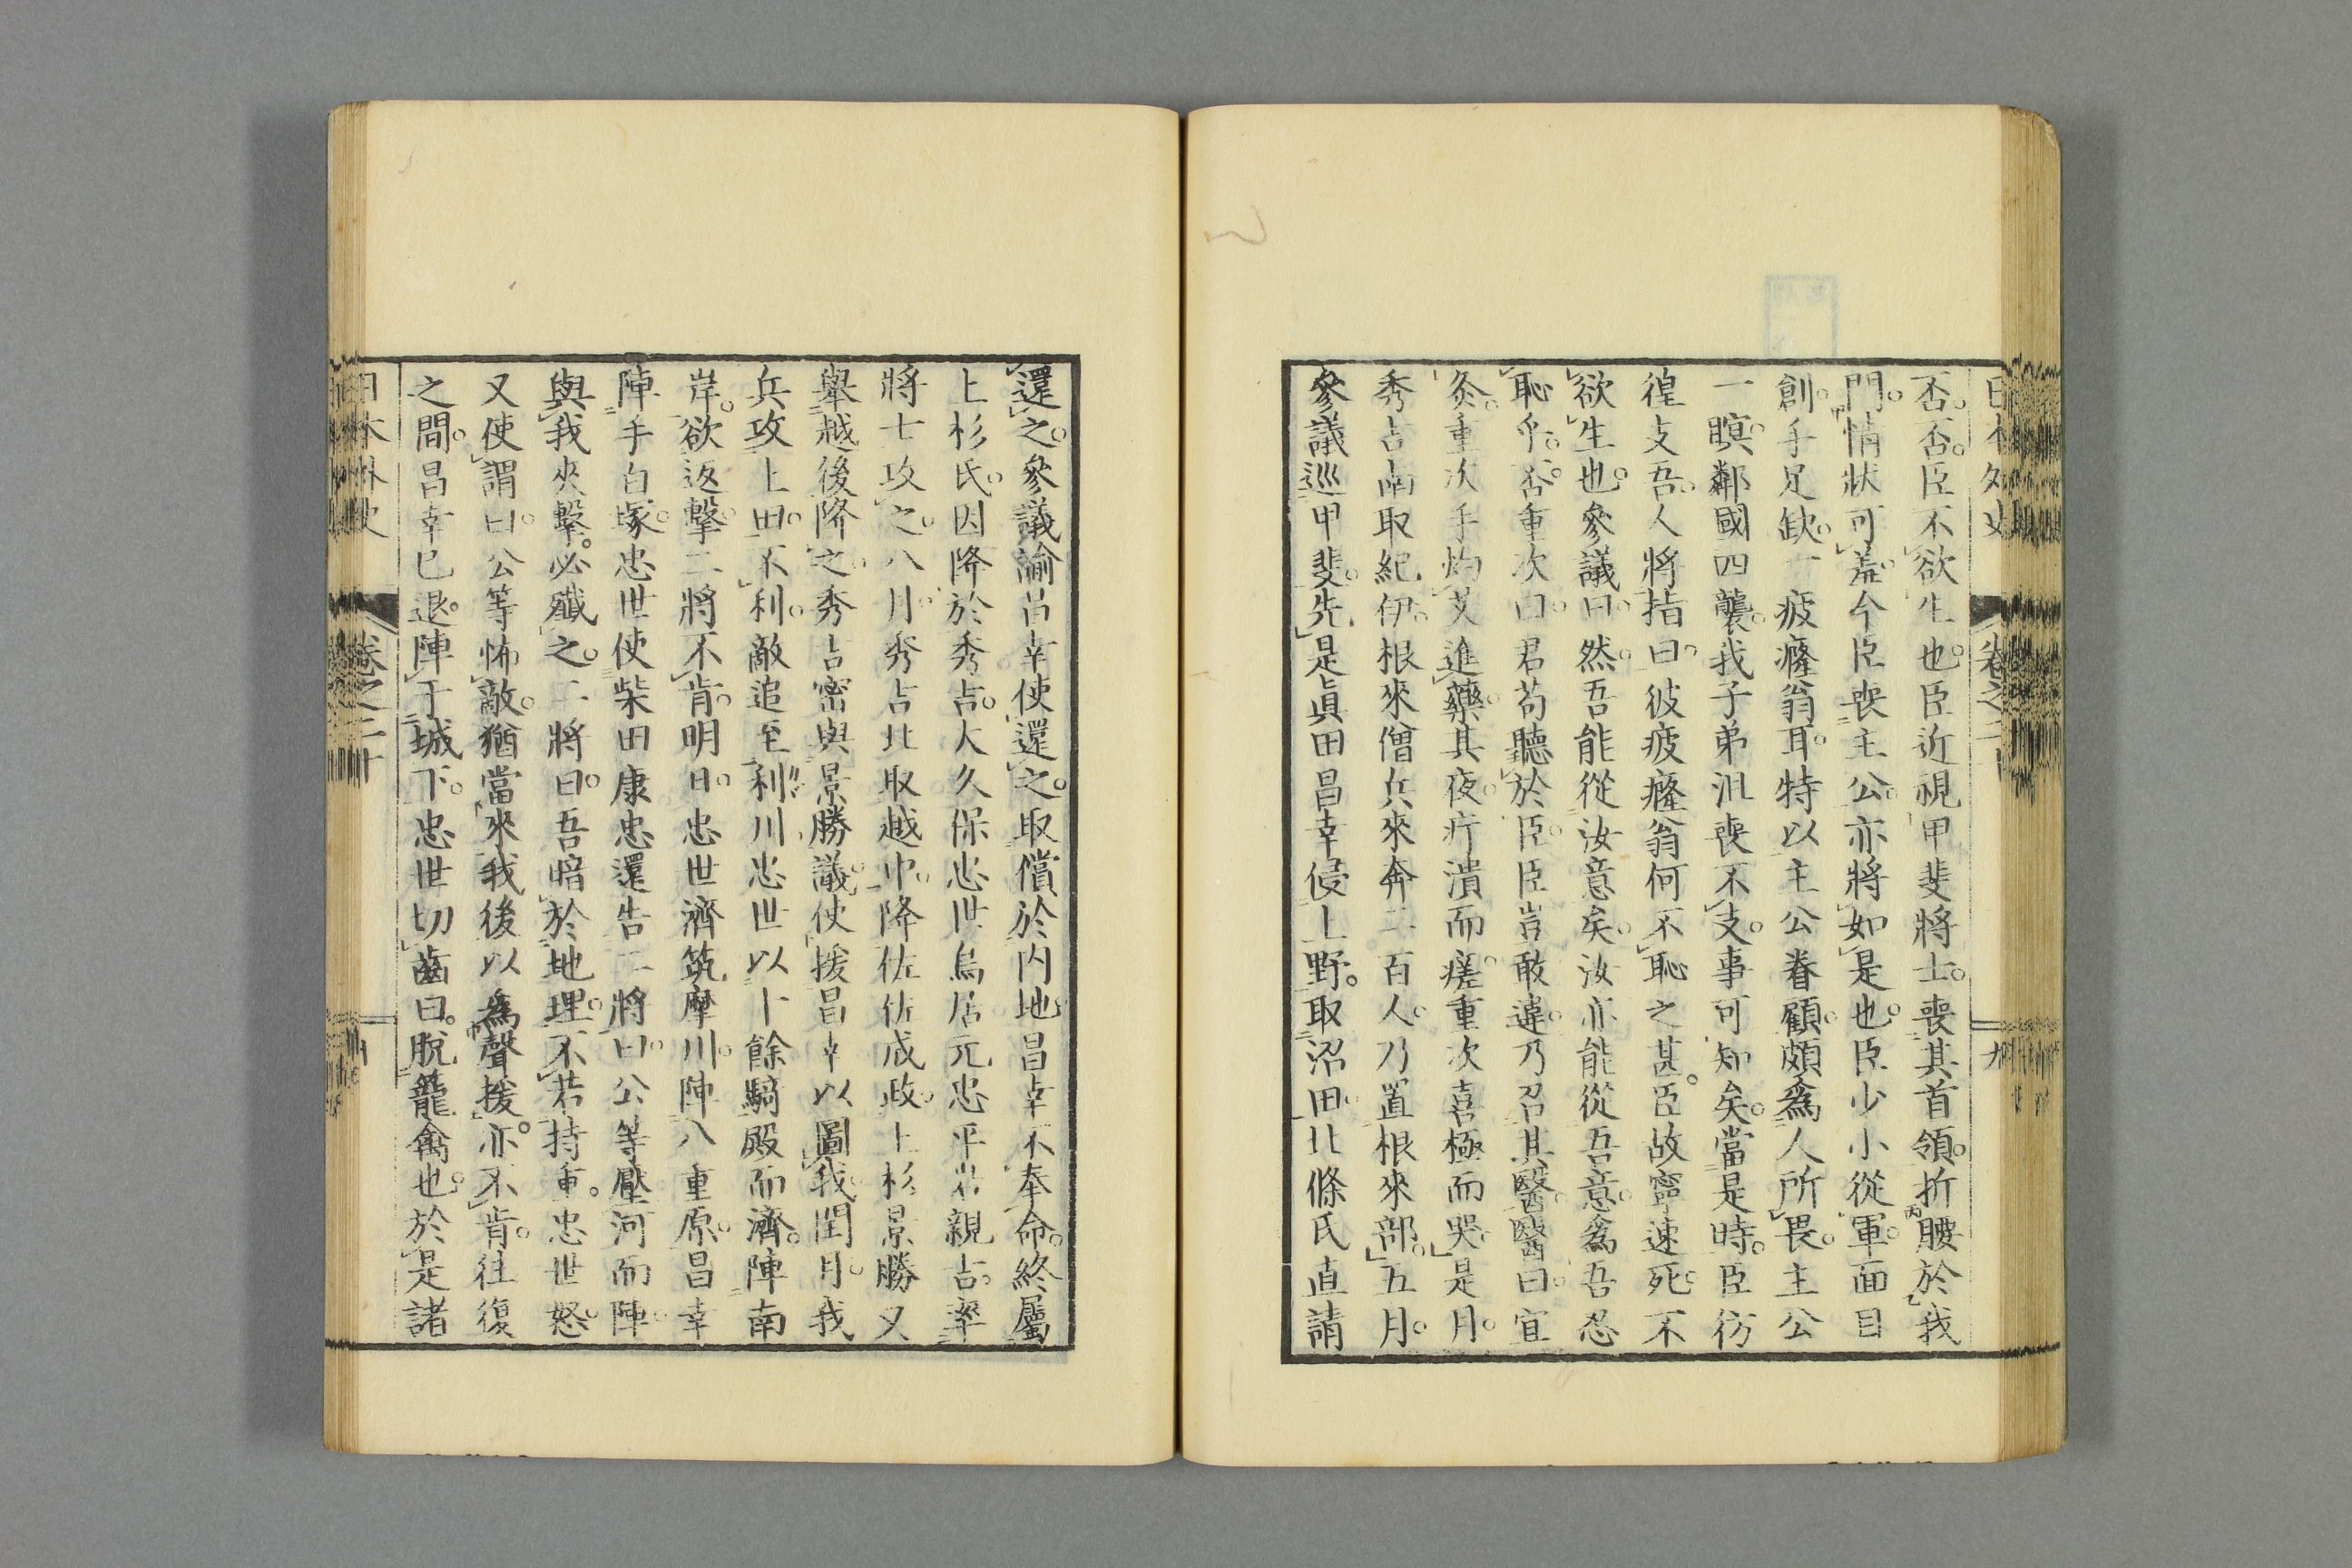 日本外史
卷之二十
九
否。否。臣不欲生也。臣近視甲斐將士。喪其首領。折腰於我
門。情狀可羞。今臣喪主公。亦將如是也。臣少小從軍。面目
創。手足缺。一疲癃翁耳。特以主公眷顧。頗爲人所畏。主公
一瞑。鄰國四襲。我子弟沮喪不支。事可知矣。當是時。臣彷
徨支吾。人將指曰。彼疲癃翁何不恥之甚。臣故寧速死。不
欲生也。參議曰。然。吾能從汝意矣。汝亦能從吾意。爲吾忍
恥乎。否。重次曰。君苟聽於臣。臣豈敢違。乃召其醫。醫曰。宜
灸。重次手灼艾。進藥。其夜。疔潰而瘥。重次喜極而哭。是月。
秀吉南取紀伊。根來僧兵來奔二百人。乃置根來部。五月。
參議巡甲斐。先是眞田昌幸侵上野。取沼田。北條氏直請
還之。參議諭昌幸使還之。取償於内地。昌幸不奉命。終屬
上杉氏。因降於秀吉。大久保忠世鳥居元忠平岩親吉。率
將士攻之。八月。秀吉北取越中。降佐佐成政。上杉景勝又
舉越後降之。秀吉密與景勝議。使援昌幸以圖我。閏月。我
兵攻上田。不利。敵追至利川。忠世以十餘騎殿而濟。陣南
岸。欲返擊。二將不肯。明日。忠世濟筑摩川。陣八重原。昌幸
陣手白塚。忠世使柴田康忠還告二將曰。公等壓河而陣。
與我夾擊。必殲之。二將曰。吾暗於地理。不若持重。忠世怒。
又使謂曰。公等怖敵。猶當來我後以爲聲援。亦不肯。往復
之間。昌幸已退。陣于城下。忠世切齒曰。脫籠禽也。於是諸
日本外史
卷之二十